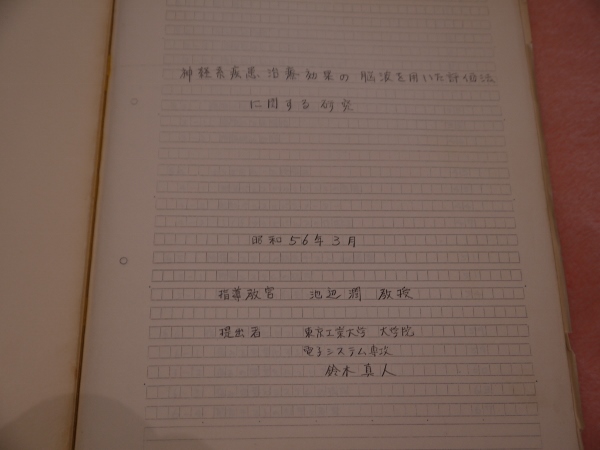 神経系疾患治療効果の脳波を用いた評価法
に関する研究
昭和56年3月
指導教官 池辺潤 教授
提出者 東京工業大学 大学院
電子システム専攻
鈴木真人